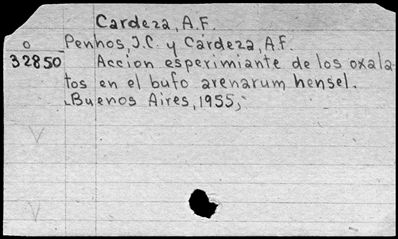 Cardeza, A.F.
o
Penhos, J.C. y Cardeza, A.F.
32850
Accion esperimiante de los oxala-
tos en el bufo arenarum hensel.
Buenos Aires, 1955,